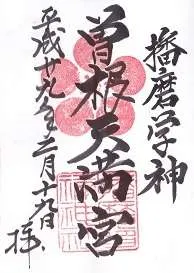 播磨学神
曽根天満宮
平成廿九年二月十九日
拝